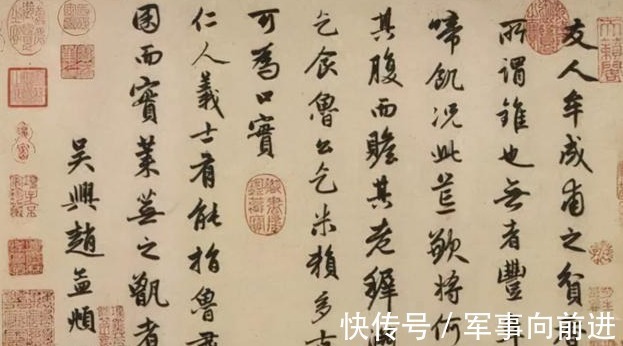 友人牟成甫之貧
所謂錐也無者豐
啼飢況此荒歉將何
其腹而贍其老穉
乞食魯公乞米賴多古
可為口實
仁人義士有能指魯肅
囷而實萊蕪之甑者
吳興趙孟頫
快传号／军事向前进